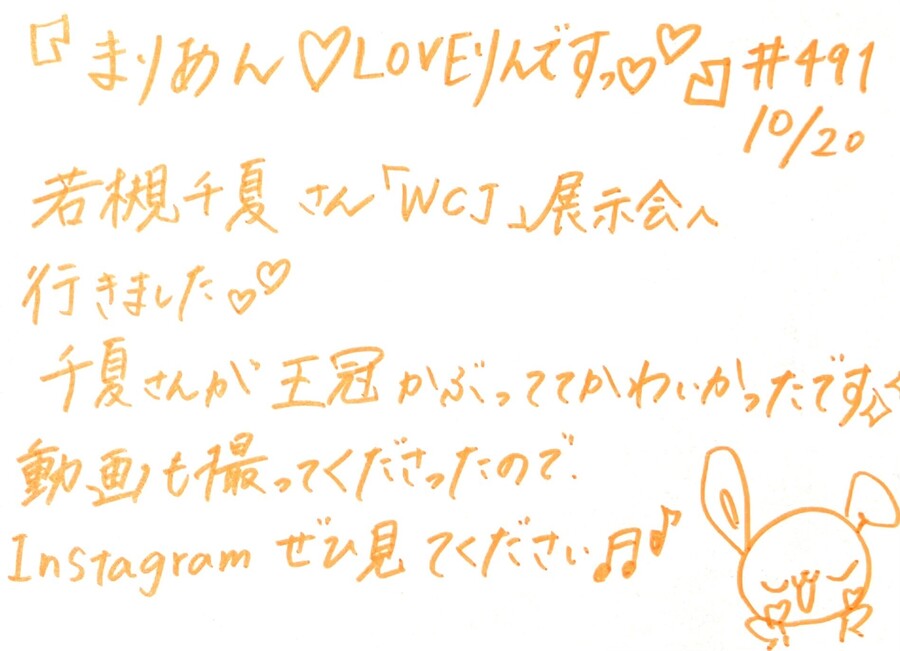 『まりあん♡LOVEりんですっ♡♡』#491
10/20
若槻千夏さん「WCJ」展示会へ
行きました♡♡
千夏さんが王冠かぶっててかわいかったです✧
動画も撮ってくださったので、
Instagramぜひ見てください♬♪